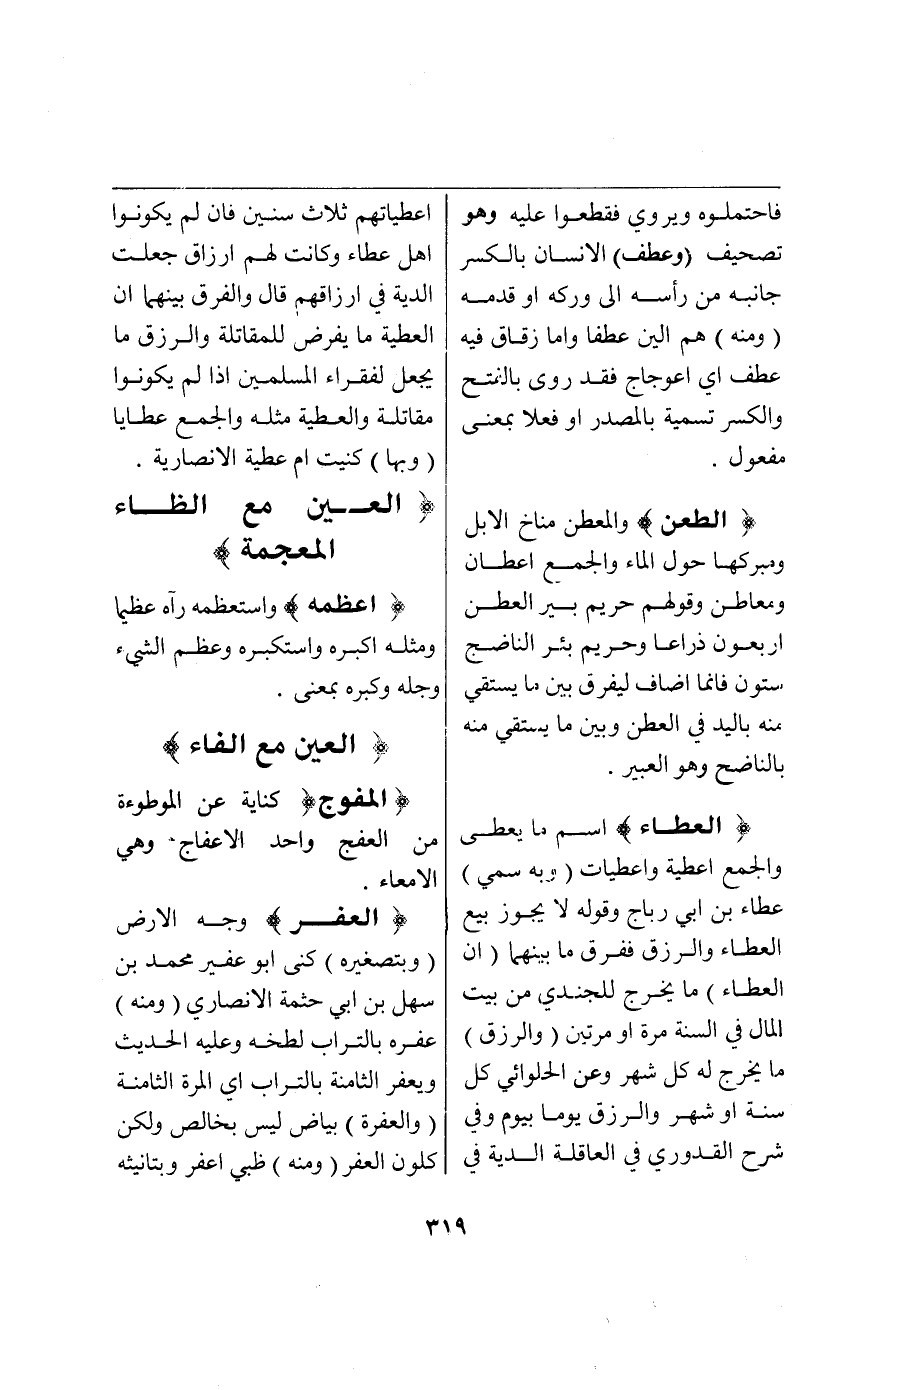 فاحتملوه ويروي فقطعوا عليه وهو
تصحيف (وعطف) الانسان بالكسر
جانبه من رأسه الى وركه او قدمه
( ومنه ) هم الين عطفا واما زقاق فيه
عطف اي اعوجاج فقد روى بالفتح
والكسر تسمية بالمصدر او فعلا بمعنى
مفعول .
﴿ الطعن ﴾ والمعطن مناخ الابل
ومبركها حول الماء والجمع اعطان
ومعاطن وقولهم حريم بير العطن
اربعون ذراعا وحريم بئر الناضح
ستون فانما اضاف ليفرق بين ما يستقي
منه باليد في العطن وبين ما يستقي منه
بالناضح وهو العبير .
﴿ العطاء ﴾ اسم ما يعطى
والجمع اعطية واعطيات ( وبه سمي )
عطاء بن ابي رباح وقوله لا يجوز بيع
العطاء والرزق ففرق ما بينهما ( ان
العطاء ) ما يخرج للجندي من بيت
المال في السنة مرة او مرتين ( والرزق )
ما يخرج له كل شهر وعن الحلوائي كل
سنة او شهر والرزق يوما بيوم وفي
شرح القدوري في العاقلة الدية في
اعطياتهم ثلاث سنين فان لم يكونوا
اهل عطاء وكانت لهم ارزاق جعلت
الدية في ارزاقهم قال والفرق بينهما ان
العطية ما يفرض للمقاتلة والرزق ما
يجعل لفقراء المسلمين اذا لم يكونوا
مقاتلة والعطية مثله والجمع عطايا
( وبها ) كنيت ام عطية الانصارية .
﴿ العين مع الظاء
المعجمة ﴾
﴿ اعظمه ﴾ واستعظمه رآه عظيما
ومثله اكبره واستكبره وعظم الشيء
وجله وكبره بمعنى .
﴿ العين مع الفاء ﴾
﴿ المفوج ﴾ كناية عن الموطوءة
من العفج واحد الاعفاج وهي
الامعاء .
﴿ العفر ﴾ وجه الارض
( وبتصغيره ) كنى ابو عفير محمد بن
سهل بن ابي حثمة الانصاري ( ومنه )
عفره بالتراب لطخه وعليه الحديث
ويعفر الثامنة بالتراب اي المرة الثامنة
( والعفرة ) بياض ليس بخالص ولكن
كلون العفر ( ومنه ) ظبي اعفر وبتانيثه
٣١٩